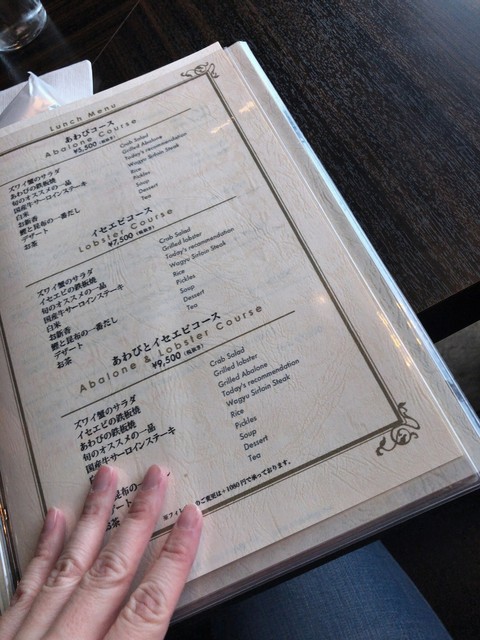 Lunch Menu
あわびコース
Abalone Course
¥5,500 (税抜き)
ズワイ蟹のサラダ Crab Salad
あわびの鉄板焼 Grilled Abalone
旬のオススメの一品 Today's recommendation
国産牛サーロインステーキ Wagyu Sirloin Steak
白米 Rice
お新香 Pickles
鰹と昆布の一番だし Soup
デザート Dessert
お茶 Tea
イセエビコース
Lobster Course
¥7,500 (税抜き)
ズワイ蟹のサラダ Crab Salad
イセエビの鉄板焼 Grilled lobster
旬のオススメの一品 Today's recommendation
国産牛サーロインステーキ Wagyu Sirloin Steak
白米 Rice
お新香 Pickles
鰹と昆布の一番だし Soup
デザート Dessert
お茶 Tea
あわびとイセエビコース
Abalone & Lobster Course
¥9,500 (税抜き)
ズワイ蟹のサラダ Crab Salad
イセエビの鉄板焼 Grilled lobster
あわびの鉄板焼 Grilled Abalone
旬のオススメの一品 Today's recommendation
国産牛サーロインステーキ Wagyu Sirloin Steak
Rice
Pickles
昆布の一 Soup
デザート Dessert
お茶 Tea
のご変更は+1080円で承っております。